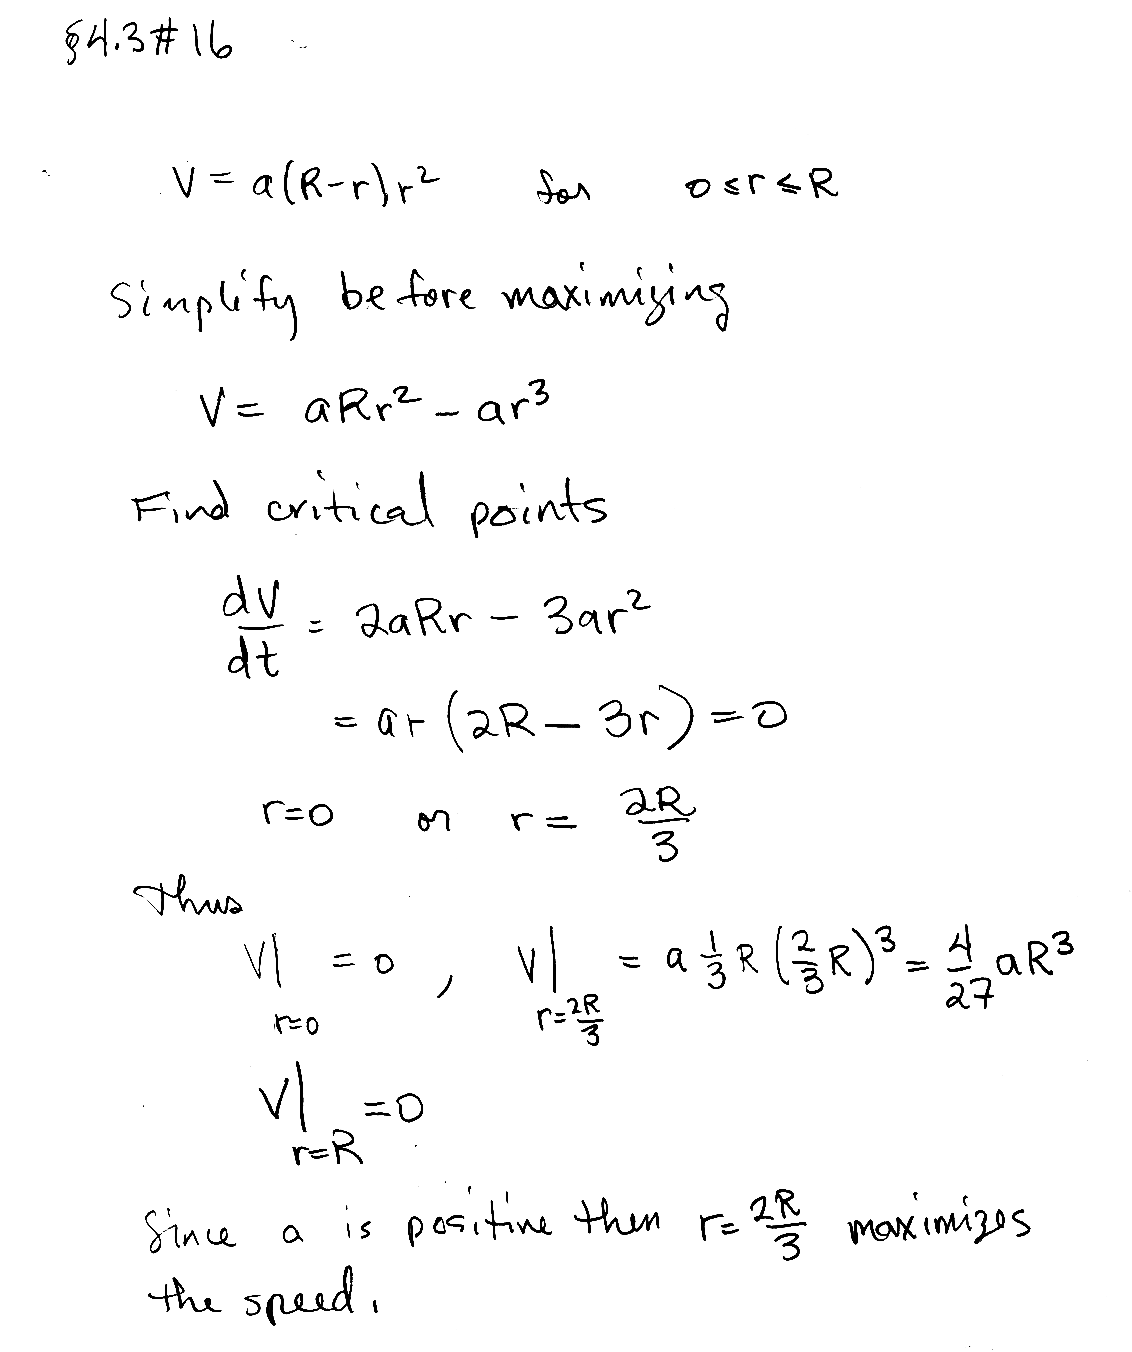 §4.3#16
V = a(R-r)r² for 0≤r≤R
Simplify before maximizing
V = aRr² - ar³
Find critical points
dV/dt = 2aRr - 3ar²
= ar(2R - 3r) = 0
r=0 or r = 2R/3
Thus
V|r=0 = 0, V|r=2R/3 = a 1/3 R (2/3 R)³ = 4/27 aR³
V|r=R = 0
Since a is positive then r = 2R/3 maximizes
the speed.